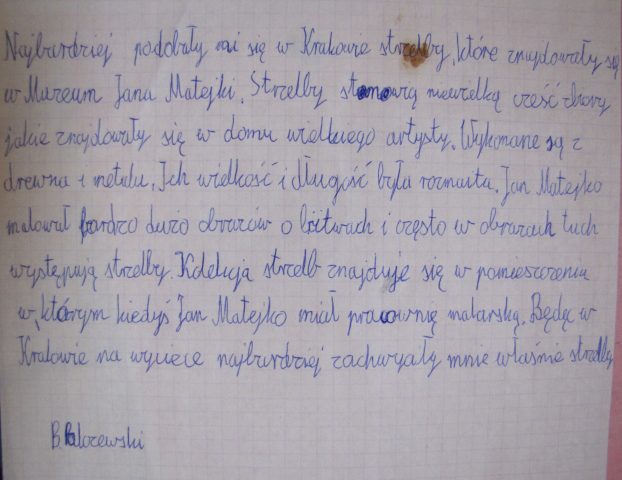 Najburdziej podobały mi się w Krakowie strzelby, które znajdowały się
w Muzeum Jana Matejki. Strzelby stanowią niewielką cześć zbiory
jakie znajdowały się w domu wielkiego artysty. Wykonane są z
drewna i metalu. Ich wielkość i długość była rozmaita. Jan Matejko
malował bardzo dużo obrazów o bitwach i często w obrazach tuch
występują strzelby. Kolekcja strzelb znajduje się w pomieszczenia
w, którym kiedyś Jan Matejko miał pracownię malarską. Będąc w
Krakowie na wyciece najburdziej zachwycały mnie właśnie strzelby